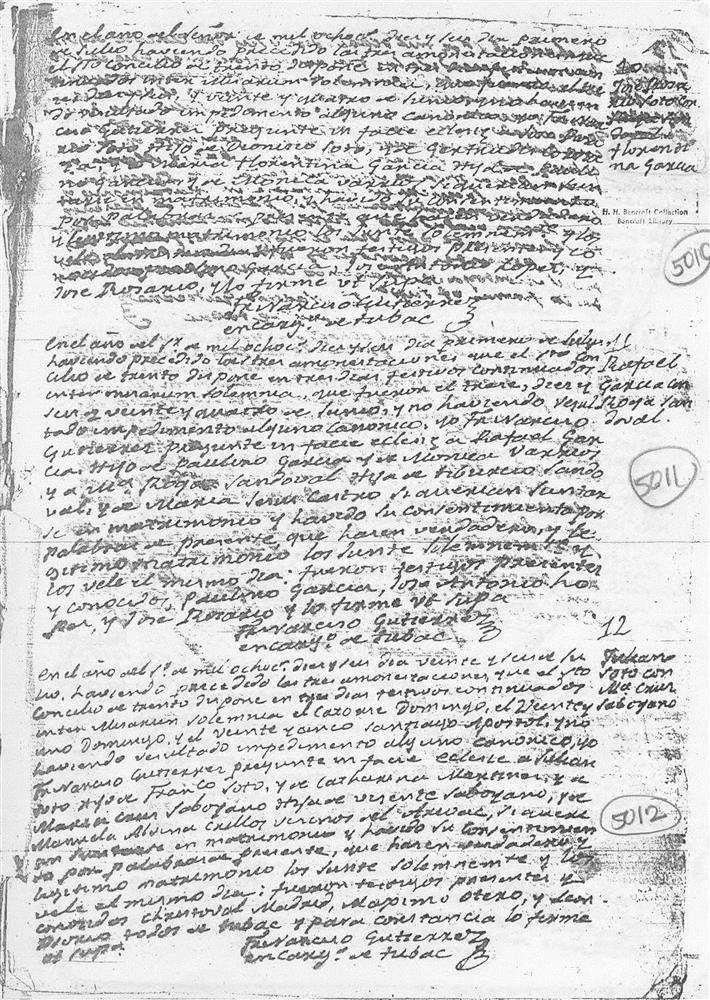 En el año del Señor de mil ochoc.s diez y seis dia primero
de Julio haviendo precedido las tres amonestaciones
el Sto Concilio de Trento dispone en tres
inter Missarum solemnia, que
y veinte y quatro de Junio y no havien
do resultado impedimento alguno canonico yo Fr. Narci
cio Gutierrez pregunte in facie eclesiæ a Jose Rosa
rio Soto Hijo de Dionicio Soto, y de Gertrudis
y a Maria Florentina Garcia Hija de Pauli
no Garcia, y de Monica Varrios si querian Jun
tarse en matrimonio y havido su consentimiento
por Palabras de presente que hacen verdadero
y legitimo matrimonio los Junte solemnemte y los
vele el mismo dia fueron testigos presentes y co
nocidos Paulino Garcia, Jose Antonio Lopez, y
Jose Rosario, y lo firme ut supa
Fr. Narciso Gutierrez
encarg.o de tubac
10
Jose Rosa
rio Soto con
Maria
Florenti
na Garcia
H. H. Bancroft Collection
Bancroft Library
5010
En el año del S.r de mil ochoc.s diez y seis dia primero de Julio
haviendo precedido las tres amonestaciones que el Sto Con
cilio de trento dispone en tres dias festivos continuados
inter missarum solemnia, que fueron el trece, diez y
seis, y veinte y quatro de Junio, y no haviendo resul
tado impedimento alguno canonico, yo Fr. Narciso
Gutierrez pregunte in facie eclesiæ a Rafael Gar
cia Hijo de Paulino Garcia y de Monica Varrios
y a M.a Rosa Sandoval Hija de tiburcio Sando
val, y de Maria Jesus Castro si querian Juntar
se en matrimonio y havido su consentimiento por
palabras de presente que hacen verdadero, y le
gitimo matrimonio los Junte solemnemte y
los vele el mismo dia: fueron testigos presentes
y conocidos, Paulino Garcia, Jose Antonio Lo
pez, y Jose Rosario y lo firme ut supa
Fr. Narciso Gutierrez
encarg.o de tubac
11
Rafael
Garcia con
Rosa San
doval.
5011
En el año del S.r de mil ochoc.s diez y seis dia veinte y seis de Ju
lio, haviendo precedido las tres amonestaciones que el Sto
Concilio de trento dispone en tres dias festivos continuados
inter Missarum solemnia el catorce Domingo, el Veinte y
uno Domingo, y el veinte y cinco Santiago Apostol, y no
haviendo resultado impedimento alguno canonico, yo
Fr. Narciso Gutierrez pregunte in facie eclesiæ a Julian
Soto Hijo de Franco Soto, y de Catharina Martinez, y a
Maria Cruz Saboyano Hija de Visente Saboyano, y de
Manuela Mesina ellos vecinos del Arivac, si querì
an Juntarse en matrimonio y havido su consentimien
to por palabras de presente, que hacen verdadero y
legitimo matrimonio los Junte solemnemte y los
vele el mismo dia: fueron testigos presentes y
conocidos Christoval Madrid, Maximo Otero, y Leon
Osorio todos de tubac y para constancia lo firme
ut supa.
Fr. Narciso Gutierrez
encarg.o de tubac
12
Julian
Soto con
M.a Cruz
Saboyano
5012